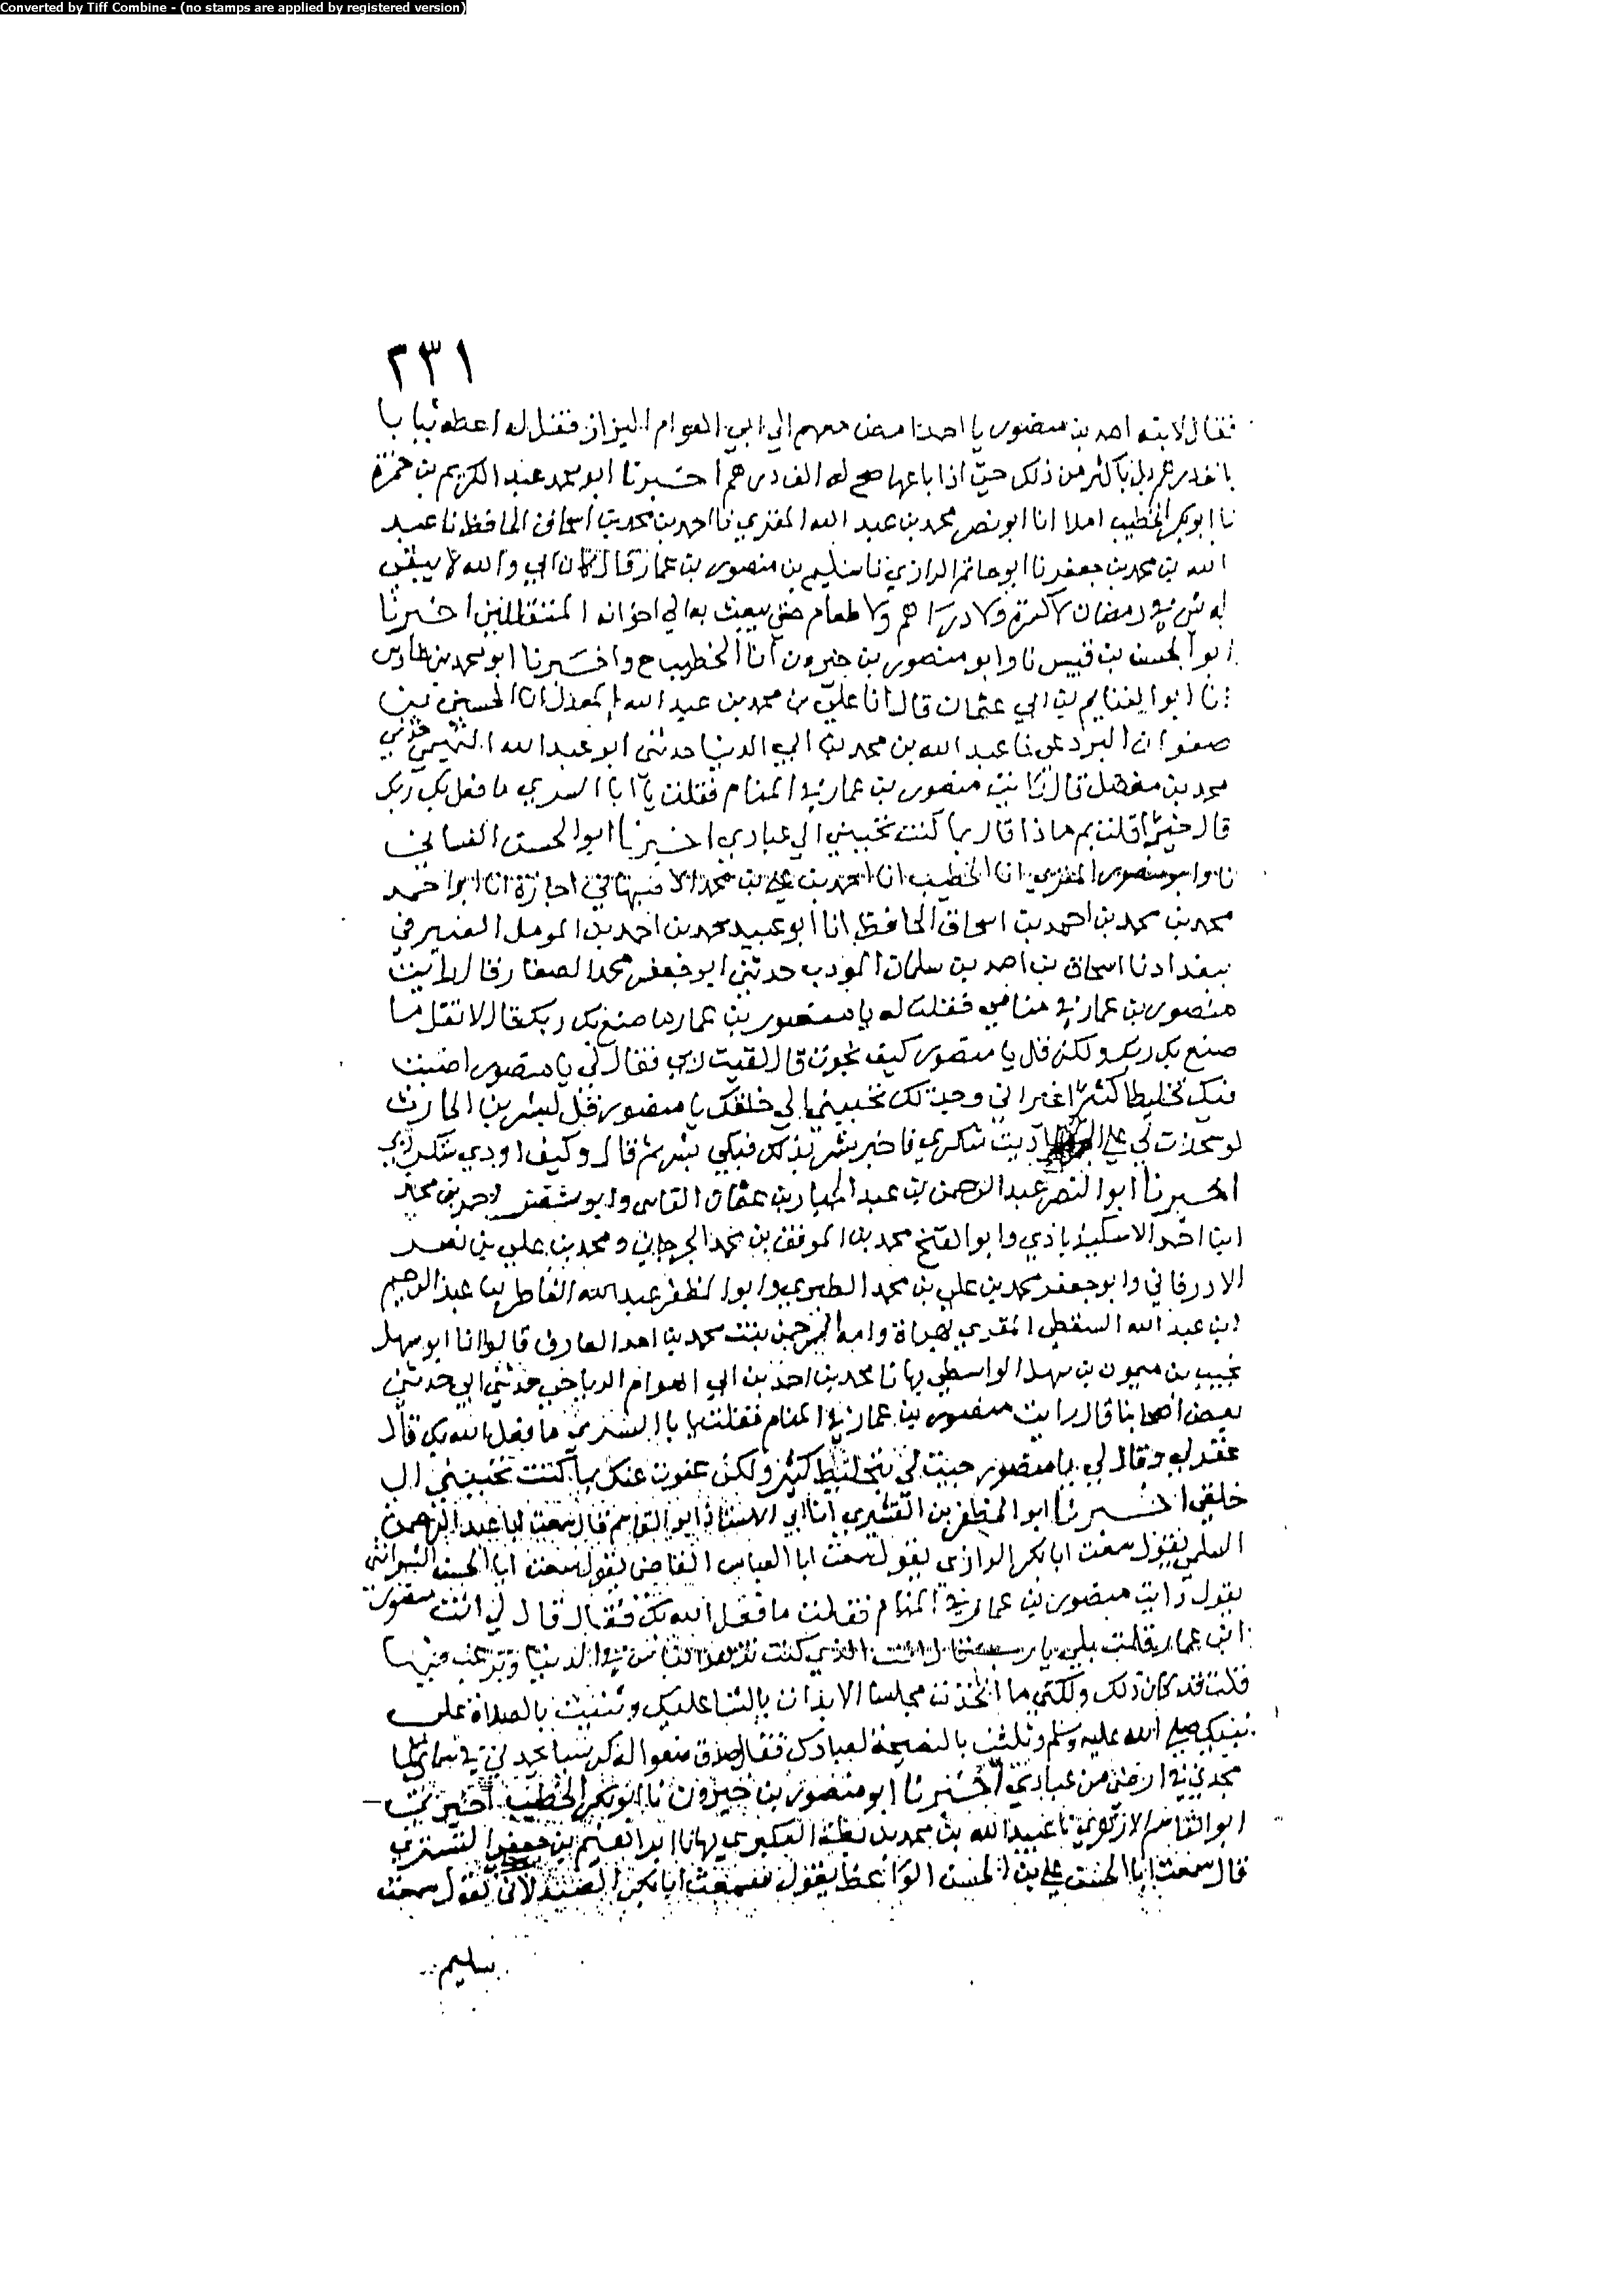 Converted by Tiff Combine - (no stamps are applied by registered version)
٢٣١
فقال لابنه احمد بن منصور يا احمد امض معهم الي ابي العوام البزاز فقل له اعطه ثيابا
بالف درهم بل باكثر من ذلك حتي اذا باعها صح له الف درهم اخبرنا ابو محمد عبد الكريم بن حمزة
نا ابو بكر الخطيب املا انا ابو نصر محمد بن عبد الله المقري نا احمد بن محمد بن اسحاق الحافظ نا عبد
الله بن محمد بن جعفر نا ابو حاتم الرازي نا سليم بن منصور بن عمار قال كان ابي والله لا يبقي
له في رمضان لا كسرة ولا دراهم ولا طعام حتي يبعث به الي اخوانه المتقللين اخبرنا
ابو الحسن بن قبيس نا وابو منصور بن خيرون انا الخطيب ح واخبرنا ابو محمد بن طاوس
انا ابو الغنايم بن ابي عثمان قالا انا علي بن محمد بن عبد الله المعدل انا الحسين بن
صفوان البردعي نا عبد الله بن محمد بن ابي الدنيا حدثني ابو عبد الله التميمي حدثني
محمد بن مفضل قال رايت منصور بن عمار في المنام فقلت يا ابا السري ما فعل بك ربك
قال خيرا قلت بم ماذا قال بما كنت تحببني الي عبادي اخبرنا ابو الحسن الغساني
نا وابو منصور المقري انا الخطيب انا احمد بن علي بن محمد الاصبهاني اجازة انا ابو احمد
محمد بن محمد بن احمد بن اسحاق الحافظ انا ابو عبيد محمد بن احمد بن المومل الصيرفي
ببغداد نا اسحاق بن احمد بن سلمان المودب حدثني ابو جعفر محمد الصفار قال رايت
منصور بن عمار في منامي فقلت له يا منصور بن عمار ما صنع بك ربك قال لا تقل ما
صنع بك ربك ولكن قل يا منصور كيف نجوت قال لقيت ربي فقال لي يا منصور اصبت
فيك تخليطا كثيرا غير اني وجدتك تحببني الي خلقك يا منصور قل لبشر بن الحارث
لو سجدت لي علي الجمر ما اديت شكري فاخبر بشر بذلك فبكي بشر ثم قال وكيف اودي شكر ربي
اخبرنا ابو النصر عبد الرحمن بن عبد الجبار بن عثمان الفامي وابو احمد بن محمد
ابنا احمد وابو الفتح محمد بن الموفق بن محمد الجرجاني ومحمد بن علي بن
وابو جعفر محمد بن علي بن محمد الطبري وابو المظفر عبد الفاطر بن عبد الرحيم
ابن عبد الله السقطي المقري بهراة بنت محمد بن احمد العارف قالوا انا ابو سهل
نجيب بن ميمون بن سهل الواسطي بها نا محمد بن احمد بن ابي العوام الرياحي حدثني ابي حدثني
بعض اصحابنا قال رايت منصور بن عمار في المنام فقلت يا ابا السري ما فعل الله بك قال
غفر لي وقال لي يا منصور جيت لي بتخليط كثير ولكن عفوت عنك بما كنت تحببني الي
خلقي اخبرنا ابو المظفر بن القشيري انا ابي الاستاذ ابو القاسم قال سمعت ابا عبد الرحمن
السلمي يقول سمعت ابا بكر الرازي يقول سمعت ابا العباس القاضي يقول سمعت ابا الحسن الشعراني
يقول رايت منصور بن عمار في المنام فقلت ما فعل الله بك فقال قال لي انت منصور
ابن عمار فقلت بلي يا رب قال انت الذي كنت تزهد الناس في الدنيا وترغب فيها
فقلت قد كان ذلك ولكني ما اتخذت مجلسا الا بدات بالثنا عليك وثنيت بالصلاة علي
نبيك صلي الله عليه وسلم وثلثت بالنصيحة لعبادك فقال صدق ضعوا له كرسيا يمجدني في سمائي كما
مجدني في ارضي من عبادي اخبرنا ابو منصور بن خيرون نا ابو بكر الخطيب اخبرني
ابو القاسم الازهري نا عبيد الله بن محمد بن بطة العكبري بها نا ابراهيم بن جعفر التستري
قال سمعت ابا الحسن علي بن الحسن الواعظ يقول سمعت ابا بكر الصيدلاني يقول سمعت
سليم